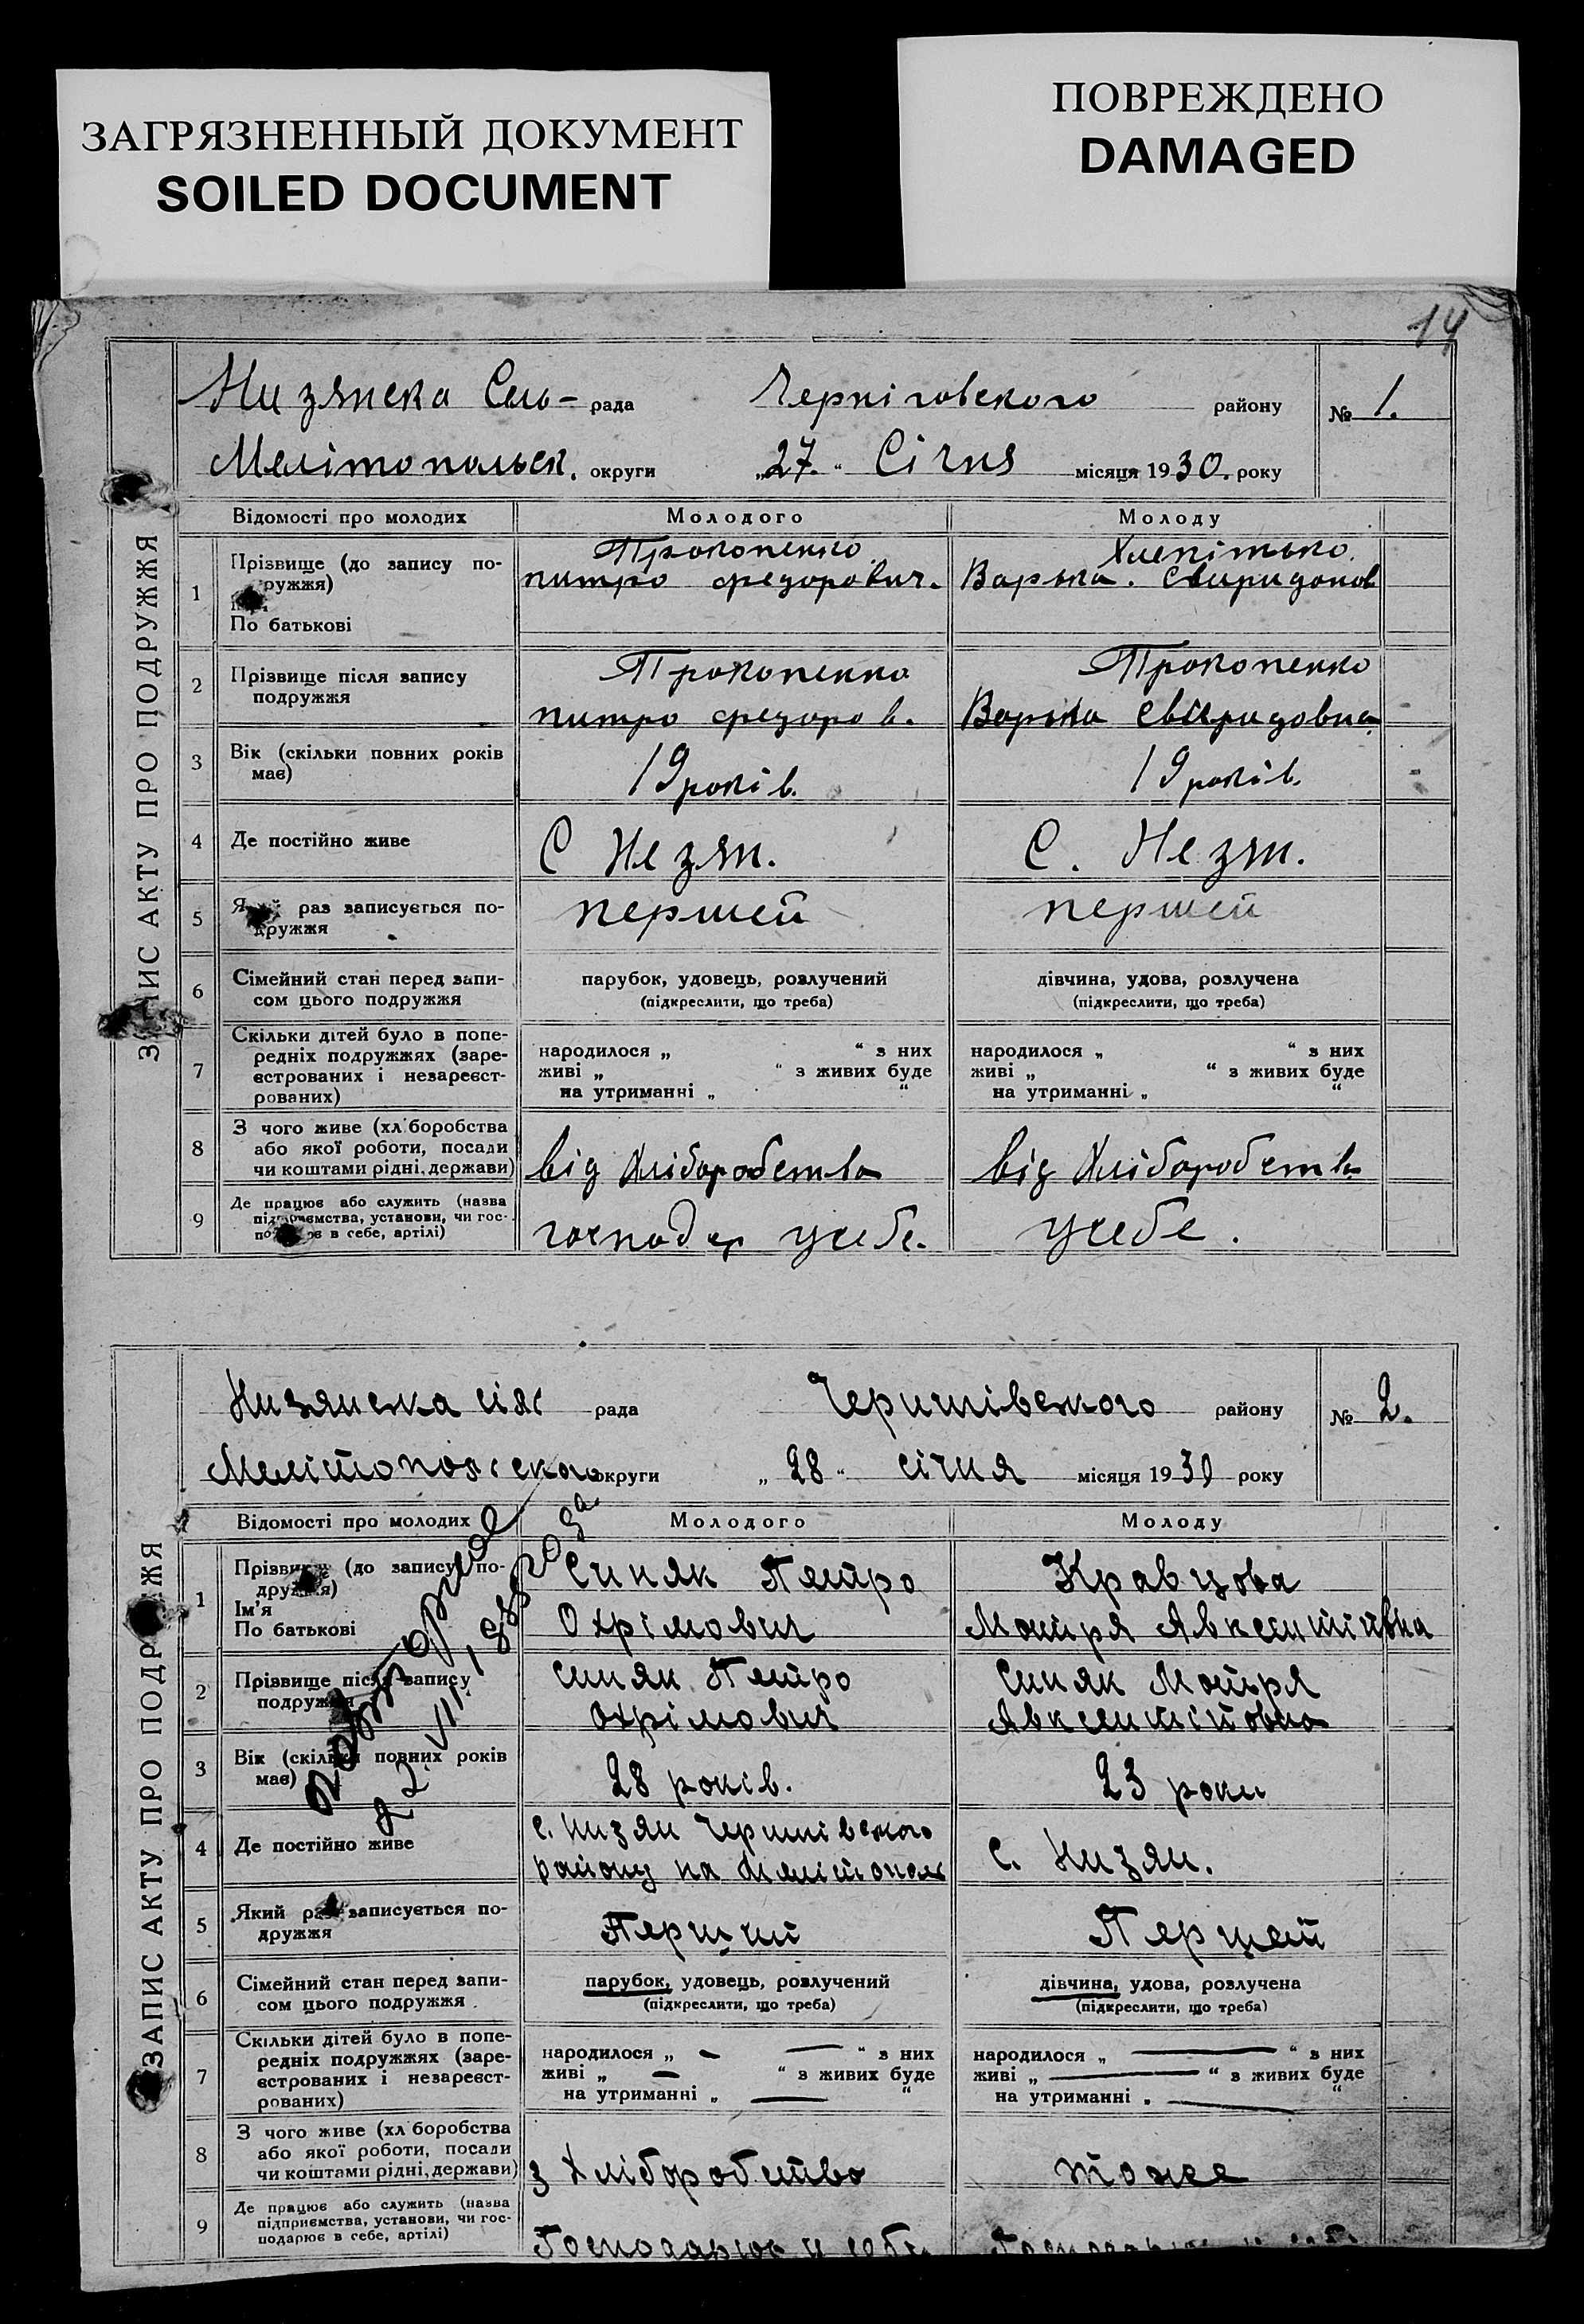 ЗАГРЯЗНЕННЫЙ ДОКУМЕНТ
SOILED DOCUMENT
ПОВРЕЖДЕНО
DAMAGED
14
Низянска Сель- рада Черніговского району № 1.
Мелітопольск. округи „27." Січня місяця 1930. року
ЗАПИС АКТУ ПРО ПОДРУЖЖЯ
Відомості про молодих Молодого Молоду
1 Прізвище (до запису по- Прокопенко
ружжя) питро федорович. Варька. Свиридонов
По батькові
2 Прізвище після запису Прокопенко Прокопенко
подружжя питро федоров. Варька
3 Вік (скільки повних років
має) 19 років. 19 років.
4 Де постійно живе С Незян. С. Незян.
5 раз записується по- першей першей
дружжя
6 Сімейний стан перед запи- парубок, удовець, розлучений дівчина, удова, розлучена
сом цього подружжя (підкреслити, що треба) (підкреслити, що треба)
7 Скільки дітей було в попе-
редніх подружжях (заре- народилося „ “ з них народилося „ “ з них
єстрованих і незареєст- живі „ “ з живих буде живі „ “ з живих буде
рованих) на утриманні „ “ на утриманні „ “
8 З чого живе (хліборобства
або якої роботи, посади
чи коштами рідні, держави) від Хліборобства від Хліборобства
9 Де працює або служить (назва
підприємства, установи, чи гос-
в себе, артілі) усебе. усебе.
Низянська рада району № 2.
округи „ 28 “ січня місяця 1930 року
ЗАПИС АКТУ ПРО ПОДРУЖЖЯ
Відомості про молодих Молодого Молоду
1 Прізвище (до запису по- Синяк Петро Кравцова
дружжя)
Ім’я
По батькові Охрімович Мотря
2 Прізвище після запису Синяк Петро Синяк Мотря
подружжя Охрімович
3 Вік (скільки повних років
має) 28 років. 23 роки
4 Де постійно живе с. Низян с. Низян.
району на
5 Який раз записується по- Перший Першей
дружжя
6 Сімейний стан перед запи- парубок, удовець, розлучений дівчина, удова, розлучена
сом цього подружжя (підкреслити, що треба) (підкреслити, що треба)
7 Скільки дітей було в попе-
редніх подружжях (заре- народилося „ — — “ з них народилося „ — “ з них
єстрованих і незареєст- живі „ — “ з живих буде живі „ — “ з живих буде
рованих) на утриманні „ — “ на утриманні „ — “
8 З чого живе (хліборобства
або якої роботи, посади
чи коштами рідні, держави) з Хліборобство тоже
9 Де працює або служить (назва
підприємства, установи, чи гос-
подарює в себе, артілі)